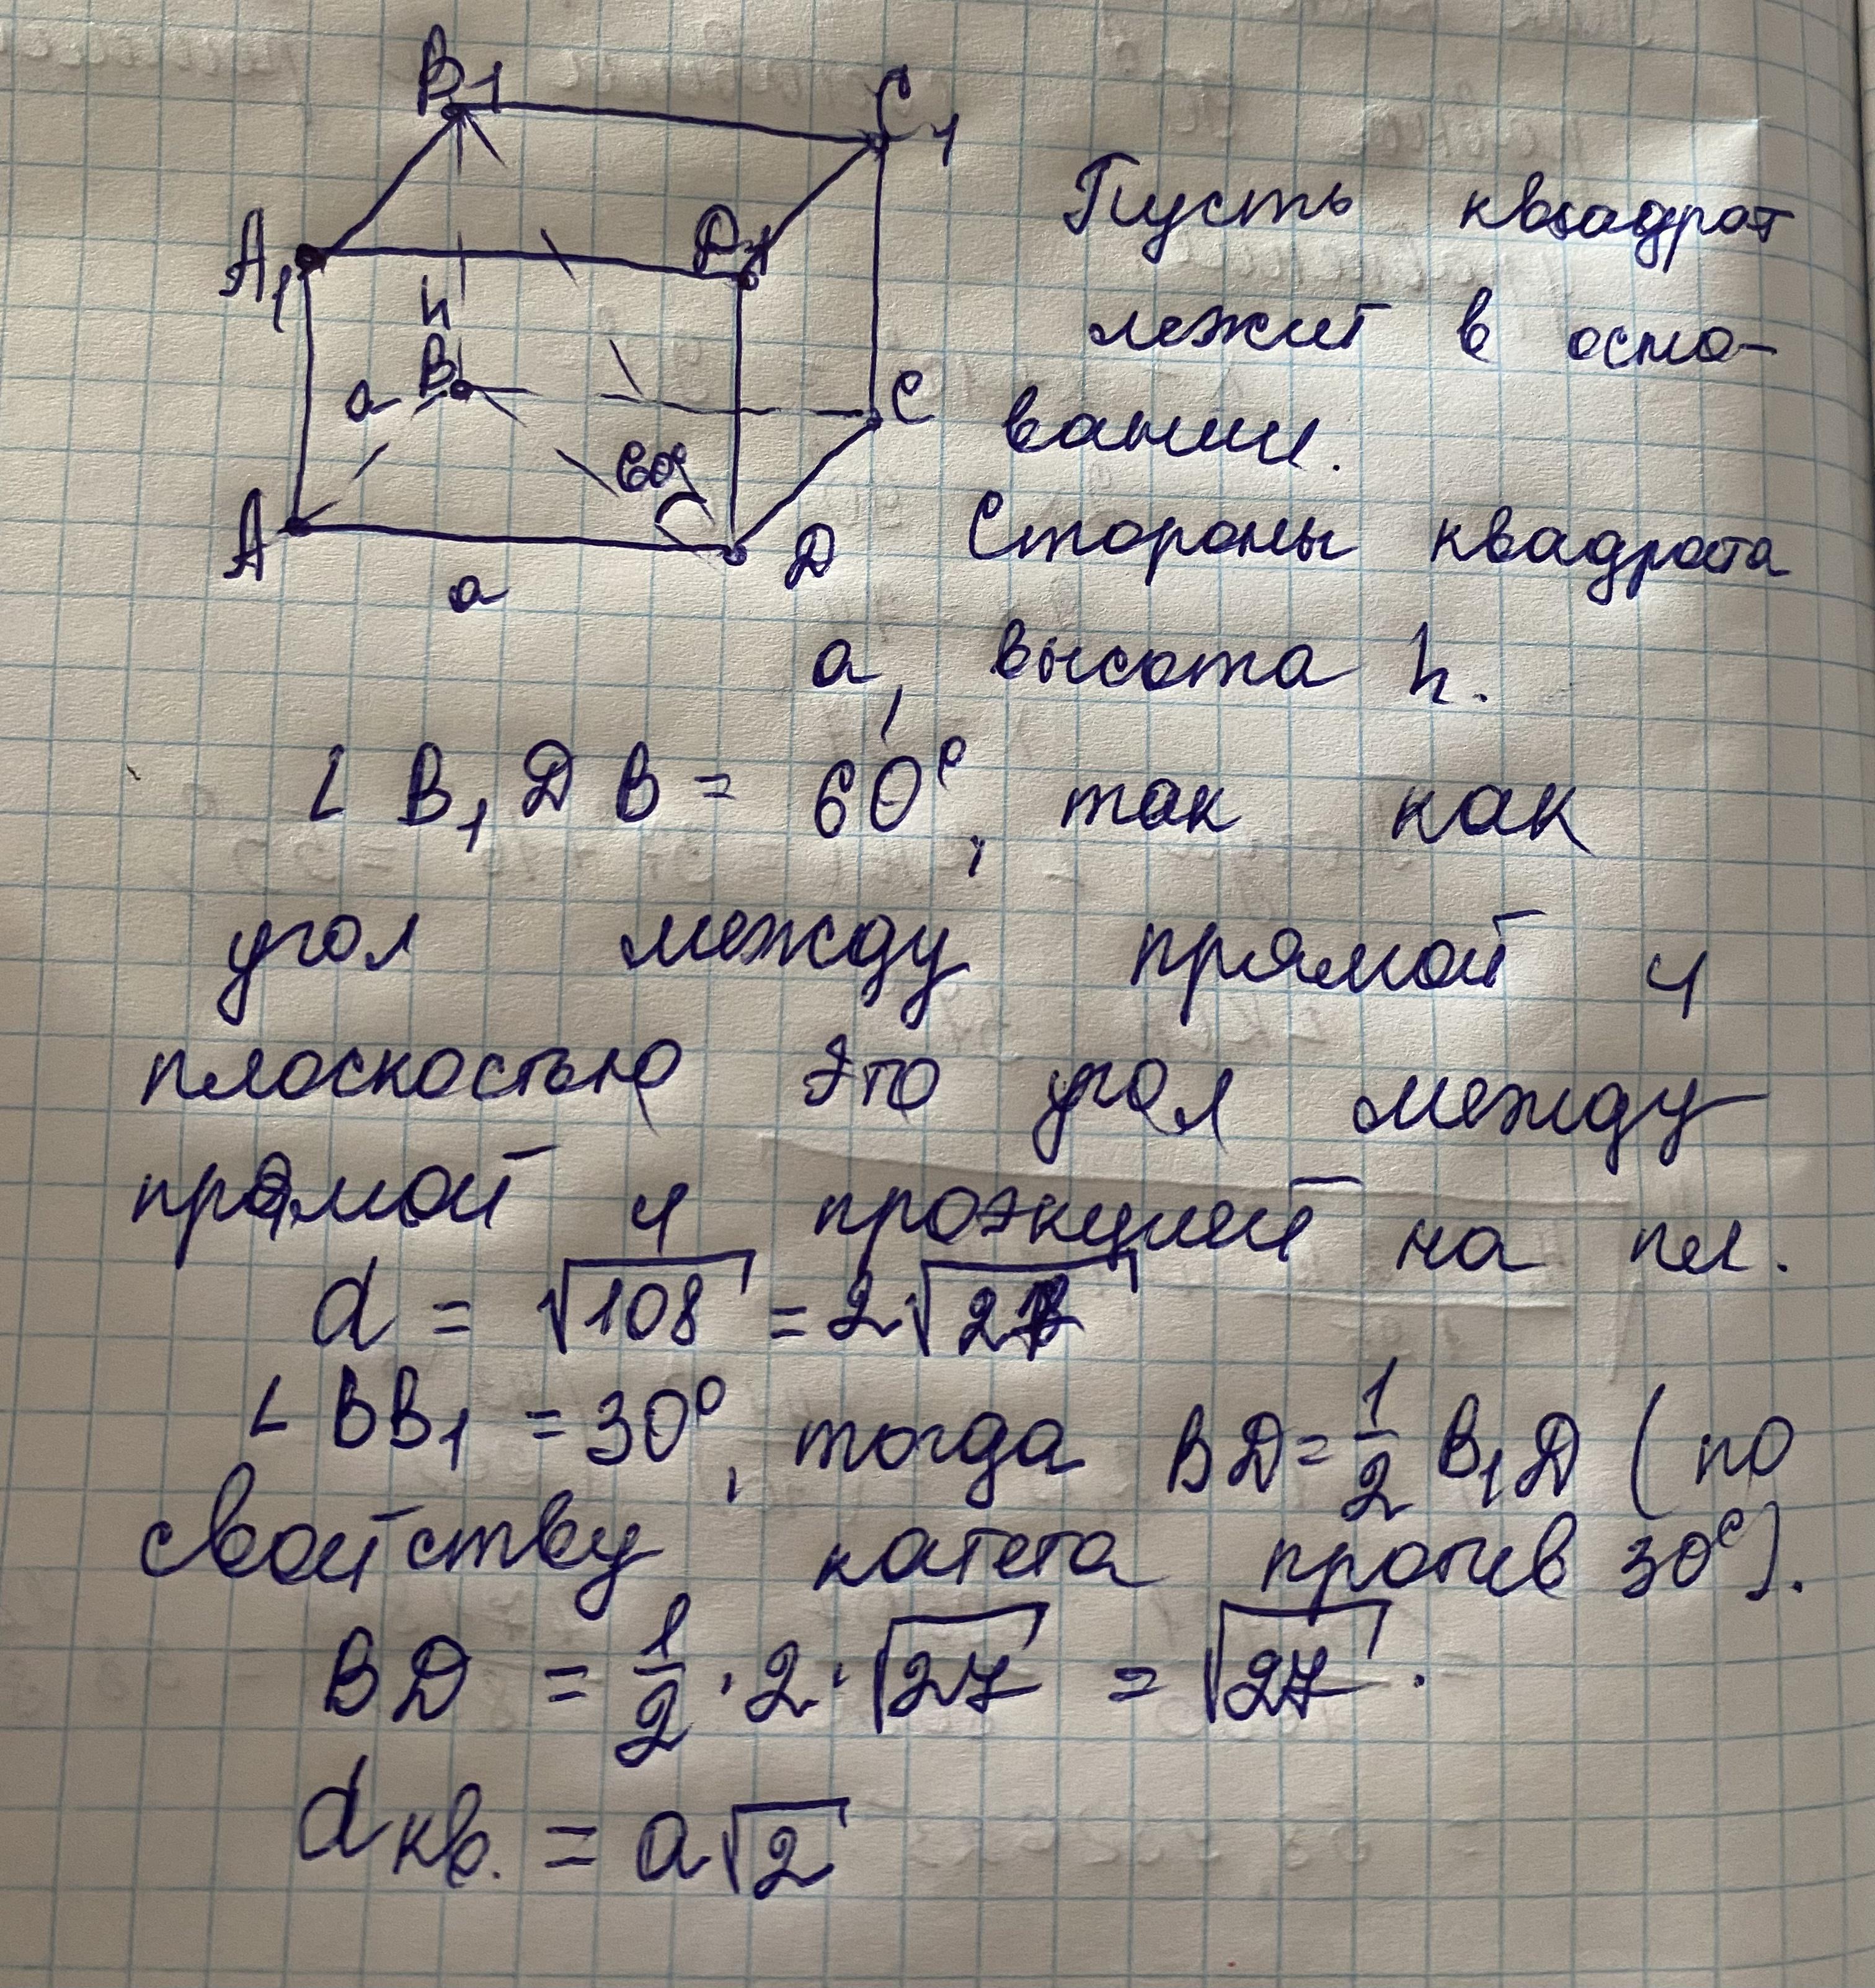 B1
C1
A1
D1
h
B
a
C
60°
A
D
a
Пусть квадрат
лежит в осно-
вании.
Стороны квадрата
a, высота h.
∠ B₁ D B = 60°, так как
угол между прямой и
плоскостью это угол между
прямой и проэкцией на пл.
d = √108 = 2√27
∠ BB₁ = 30°, тогда BD = 1/2 B₁D (по
свойству катета против 30°).
BD = 1/2 · 2 · √27 = √27.
d кв. = a√2